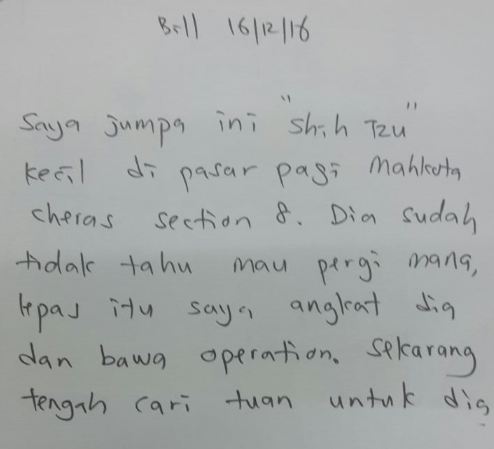 Bill 16/12/16
Saya jumpa ini "Shih Tzu"
kecil di pasar pagi Mahkota
cheras section 8. Dia sudah
tidak tahu mau pergi mana,
lepas itu saya angkat dia
dan bawa operation. Sekarang
tengah cari tuan untuk dia